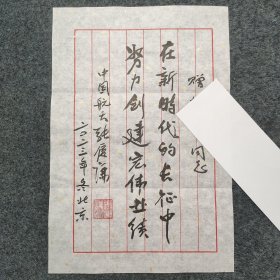 赠
同志
在新时代的长征中
努力创建宏伟业绩
中国航天张履谦
二〇二三年冬北京